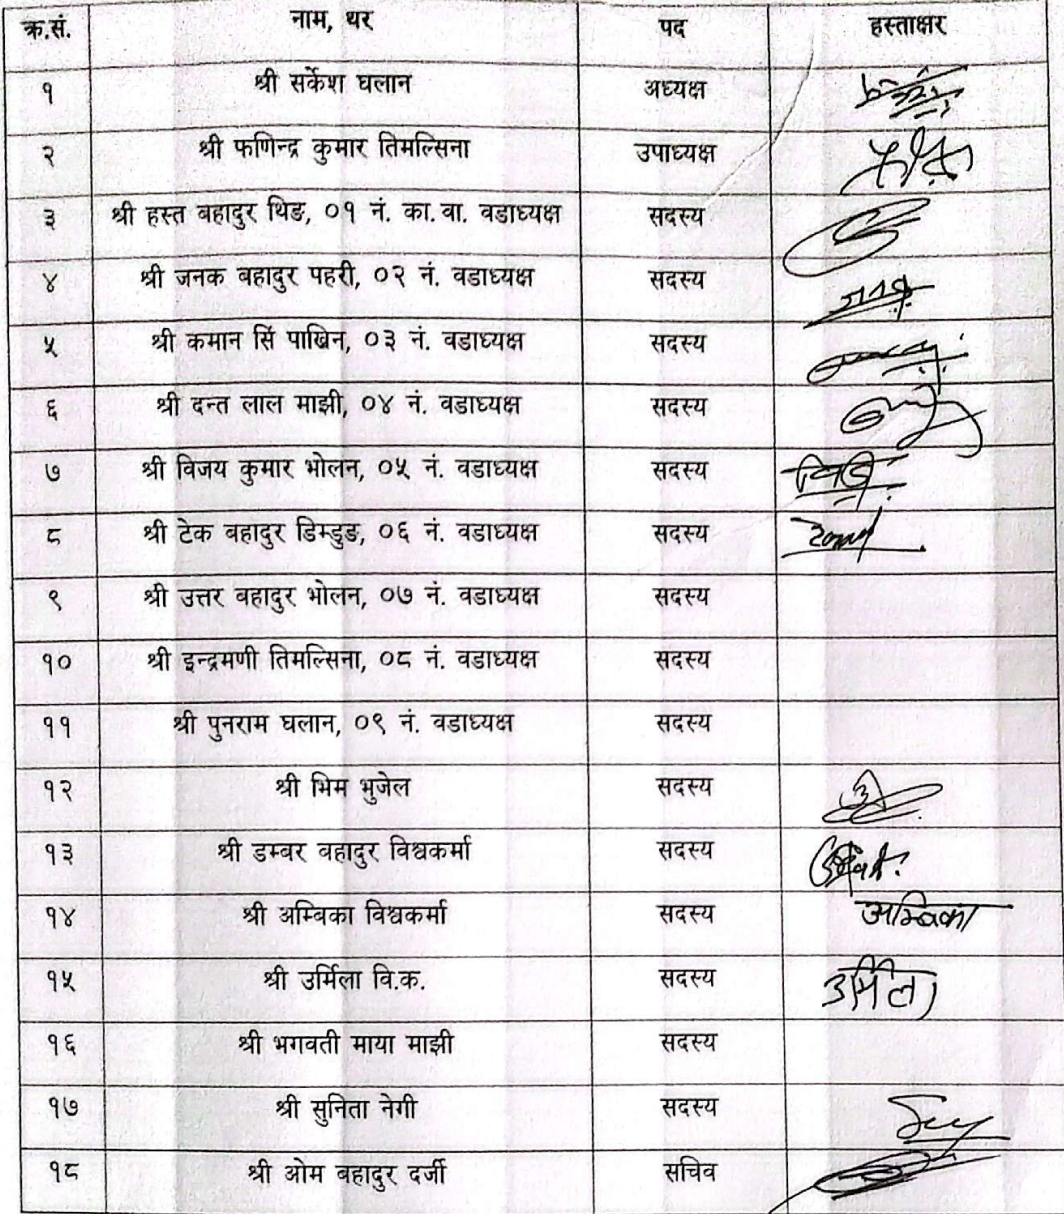 क्र.सं. नाम, थर पद हस्ताक्षर
१ श्री सर्केश घलान अध्यक्ष
२ श्री फणिन्द्र कुमार तिमल्सिना उपाध्यक्ष
३ श्री हस्त बहादुर थिङ, ०१ नं. का.वा. वडाध्यक्ष सदस्य
४ श्री जनक बहादुर पहरी, ०२ नं. वडाध्यक्ष सदस्य
५ श्री कमान सिं पाख्रिन, ०३ नं. वडाध्यक्ष सदस्य
६ श्री दन्त लाल माझी, ०४ नं. वडाध्यक्ष सदस्य
७ श्री विजय कुमार भोलन, ०५ नं. वडाध्यक्ष सदस्य
८ श्री टेक बहादुर डिम्डुङ, ०६ नं. वडाध्यक्ष सदस्य
९ श्री उत्तर बहादुर भोलन, ०७ नं. वडाध्यक्ष सदस्य
१० श्री इन्द्रमणी तिमल्सिना, ०८ नं. वडाध्यक्ष सदस्य
११ श्री पुनराम घलान, ०९ नं. वडाध्यक्ष सदस्य
१२ श्री भिम भुजेल सदस्य
१३ श्री डम्बर बहादुर विश्वकर्मा सदस्य
१४ श्री अम्बिका विश्वकर्मा सदस्य अम्बिका
१५ श्री उर्मिला वि.क. सदस्य उर्मिला
१६ श्री भगवती माया माझी सदस्य
१७ श्री सुनिता नेगी सदस्य
१८ श्री ओम बहादुर दर्जी सचिव